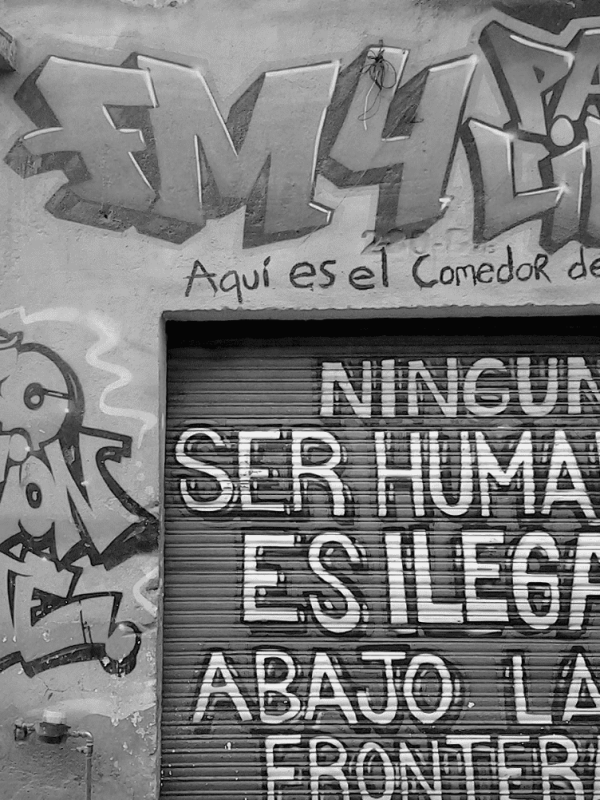 FM4 PA
Li
Aquí es el Comedor de
NINGUN
SER HUMA
ES ILEGA
ABAJO LA
FRONTER